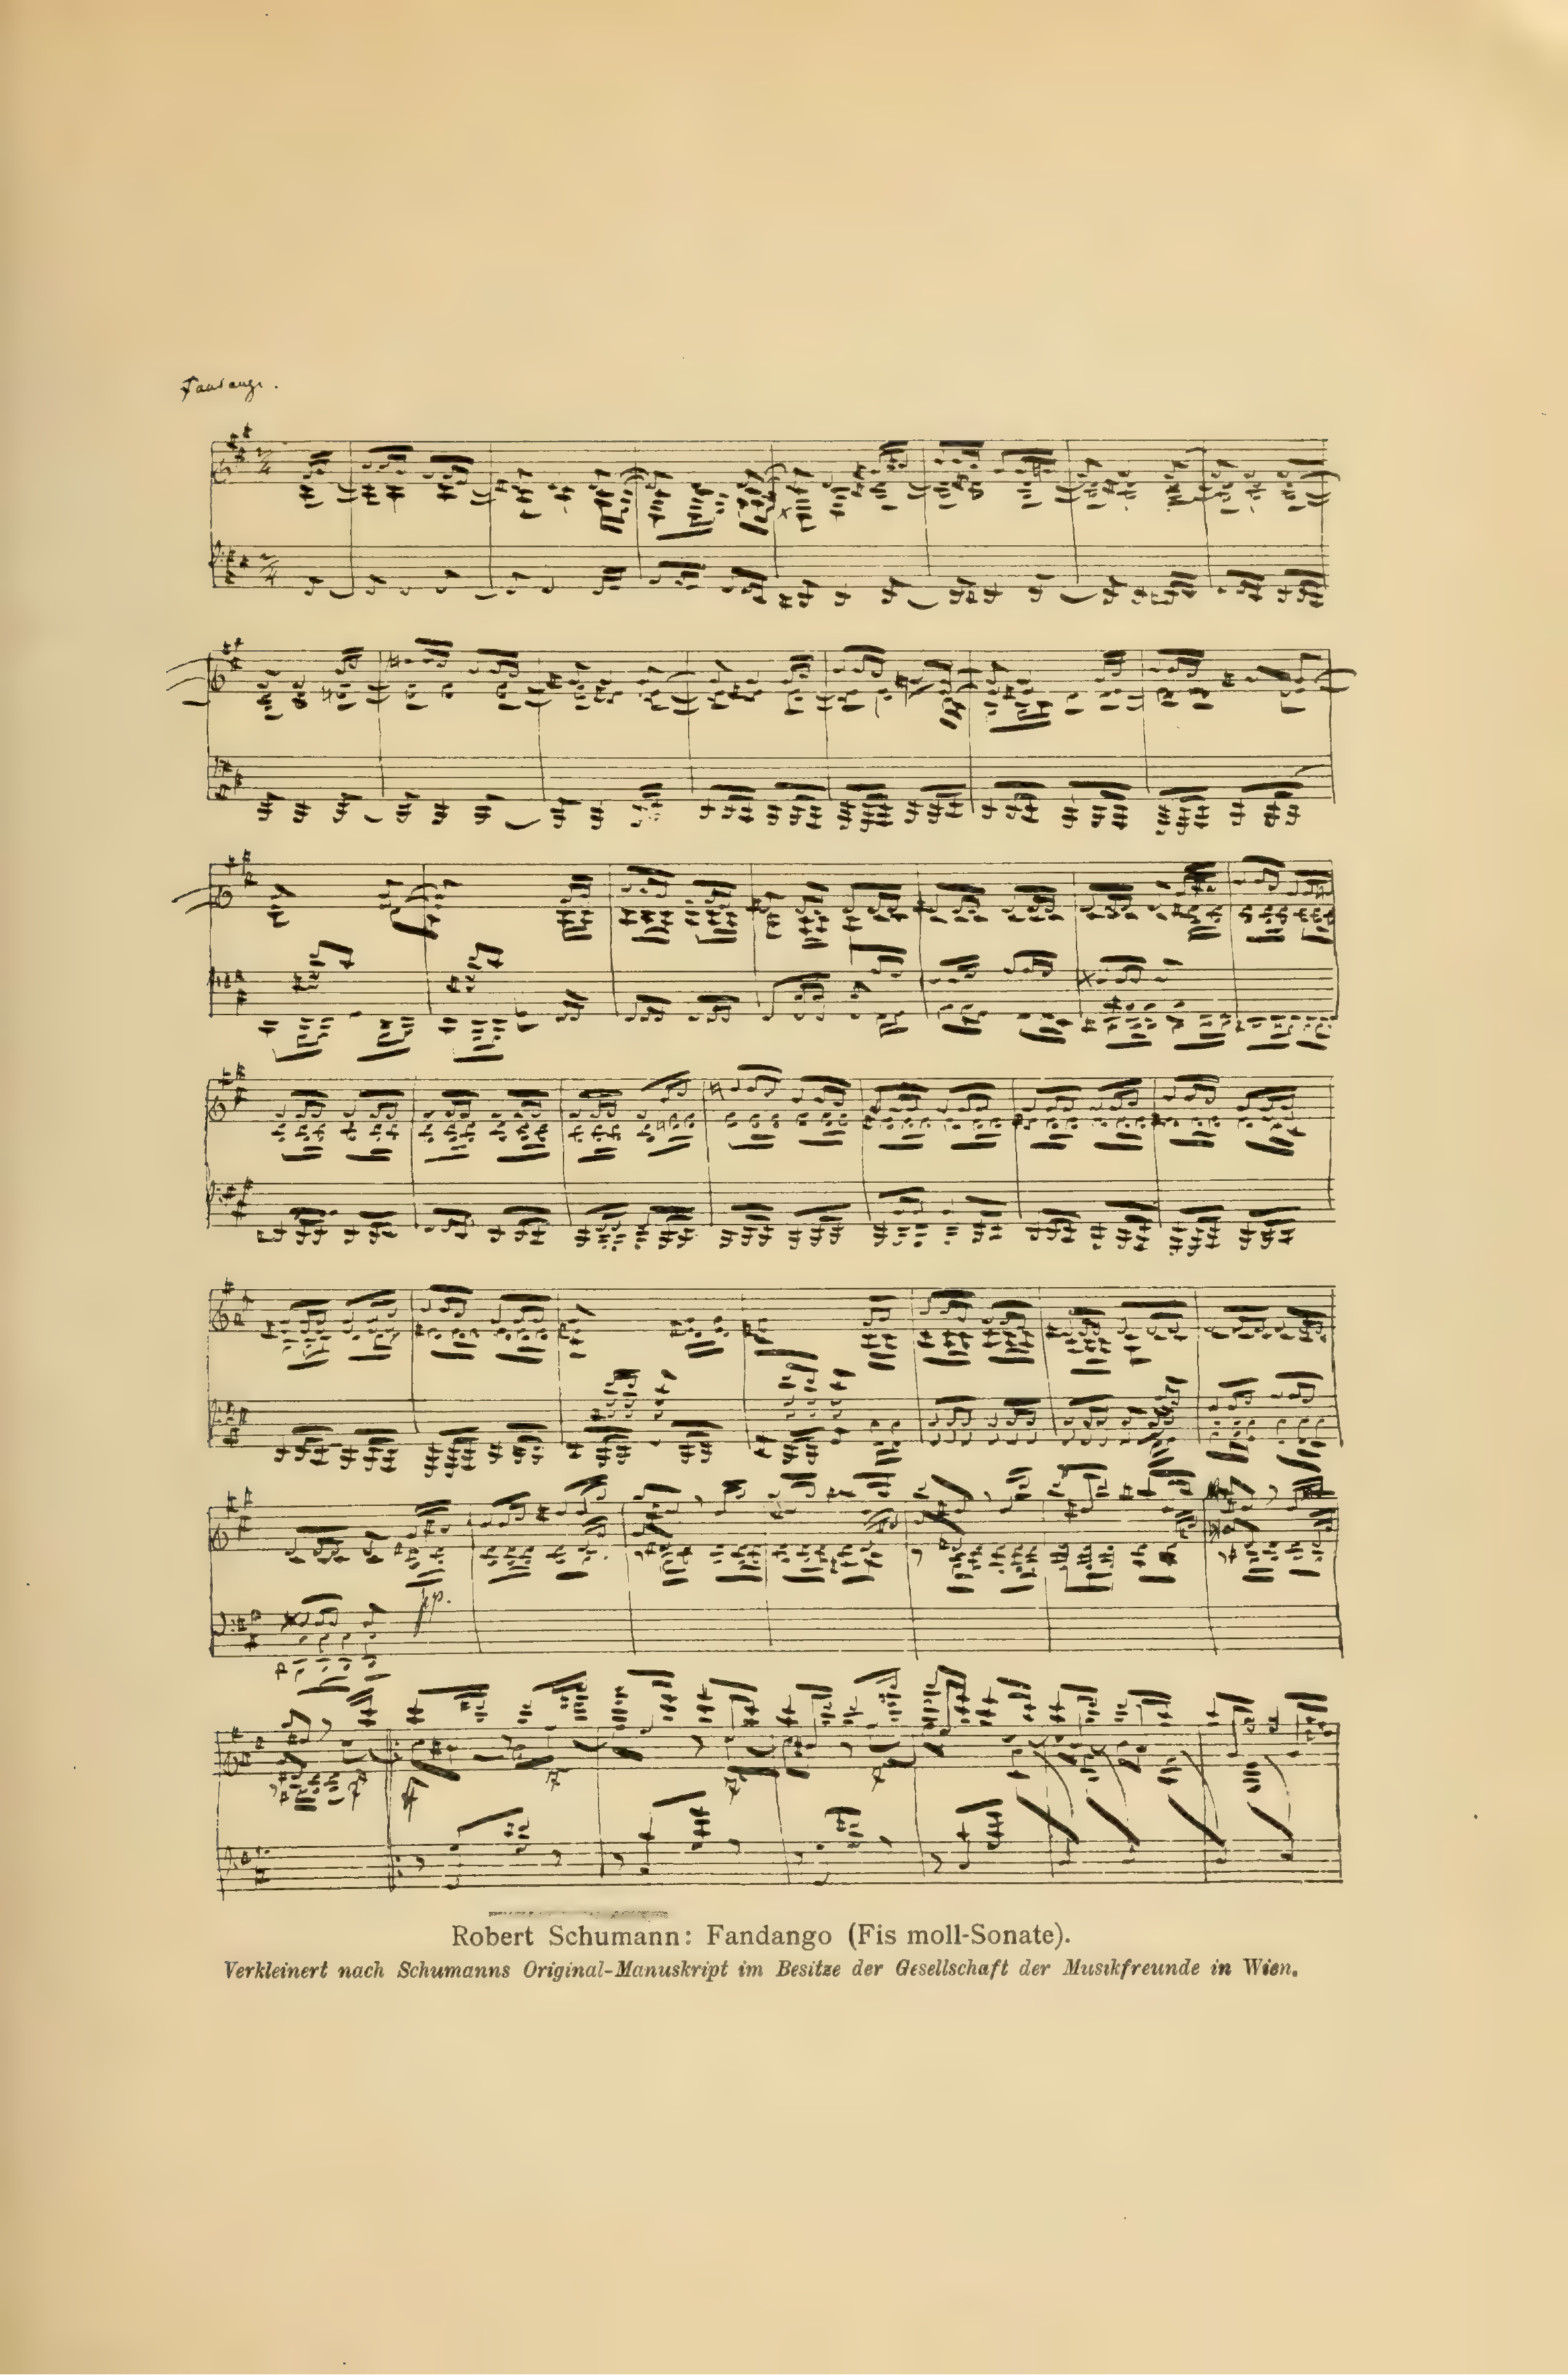 Fandango.
2/4
2/4
pp.
Robert Schumann: Fandango (Fis moll-Sonate).
Verkleinert nach Schumanns Original-Manuskript im Besitze der Gesellschaft der Musikfreunde in Wien.